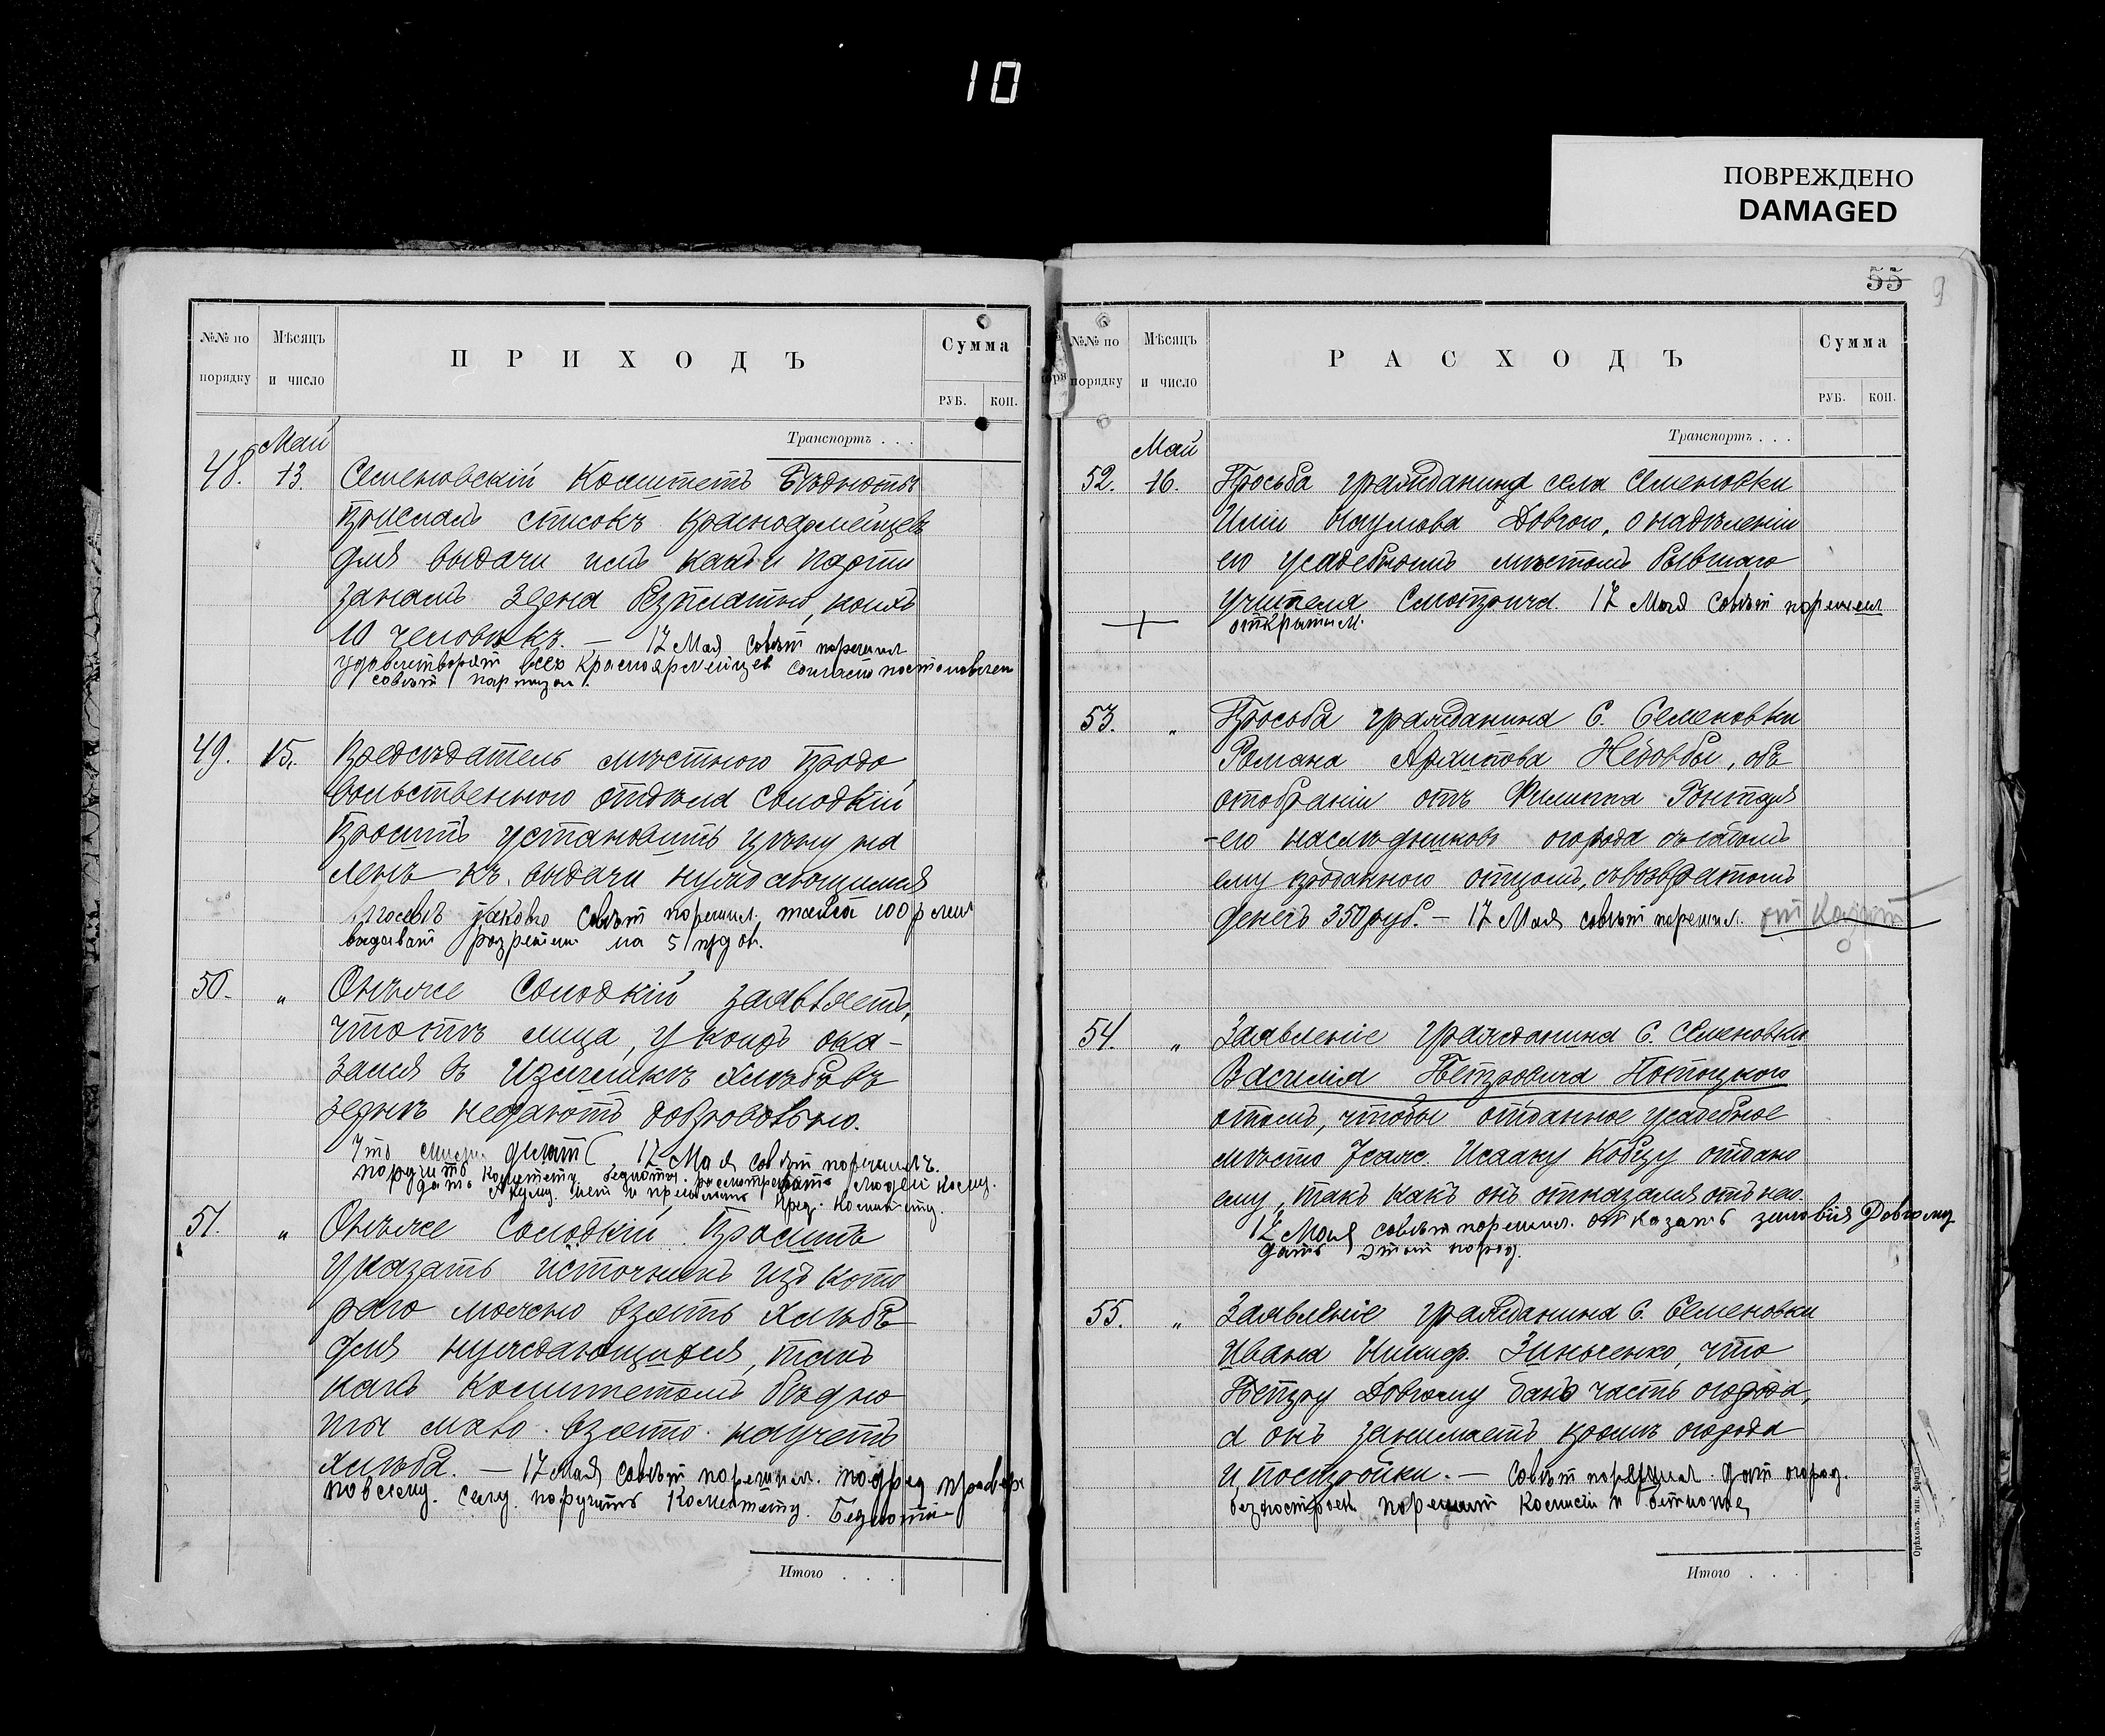 10
ПОВРЕЖДЕНО
DAMAGED
№№ по порядку
Мѣсяцъ и число
ПРИХОДЪ
Сумма
РУБ. КОП.
Транспортъ . . .
Май
48. 13. Семеновскій Комитетъ Бѣдноты
прислалъ списокъ красноармейцевъ
для выдачи имъ какъ и парти
занамъ зерна безплатно, коихъ
10 человѣкъ. — 17 Мая совѣт порешил
удовлетворят всех красноармейцев согласно постановлен
совѣт партизан.
49. 15. Предсѣдатель мѣстного продо
вольственного отдѣла Солодкій
проситъ установить цѣну на
ленъ къ выдачи нуждающимся
совѣт порешил. 100р
выдават на 5 пудов.
50. „ Онъ-же Солодкій заявляетъ,
что тѣ лица, у коихъ ока-
зался въ излишкѣ хлѣбъ въ
зернѣ недаютъ добровольно.
Что с ними делат( 17 Мая совѣт порешилъ.
поручить комитету бедноты. людей
Пред. комитету.
51. „ Онъ-же Солодкій проситъ
указать источникъ изъ кото
раго можно взять хлѣбъ
для нуждающихся, такъ
какъ Комитетомъ бѣдно
ты мало взято научетъ
хлѣба. — 17 Мая совѣт порешил.
по всему селу поручить Комитету. Бедноти
Итого . . .
55
9
№№ по порядку
Мѣсяцъ и число
РАСХОДЪ
Сумма
РУБ. КОП.
Транспортъ . . .
Май
52. 16. Просьба гражданина села Семеновки
Иліи Наумова Довгого, о надѣленіи
его усадебнымъ мѣстомъ бывшаго
учителя 17 Мая Совѣт порешил
53. „ Просьба гражданина С. Семеновки
Романа Архипова Недовбы, объ
отобраніи отъ Филиппа
-его наслѣдниковъ огорода съ садомъ
ему проданного отцомъ, съ возвратомъ
денегъ 350 руб. — 17 Мая совѣт порешил.
54. „ Заявленіе гражданина С. Семеновки
Василія Петровича Потоцкого
о томъ, чтобы отданное усадебное
мѣсто Исааку Кобцу отдано
ему, такъ какъ онъ отказался отъ него
17 Мая совѣт порешил. отказать Довгому
дать этот город.
55. „ Заявленіе гражданина С. Семеновки
Ивана Никиф. Зинченко, что
Петру Довгому данъ часть огорода,
а онъ занимаетъ кромѣ огорода
и постройки. — Совѣт порешил дат огород.
без построек
Итого . . .
Орѣховъ, тип.